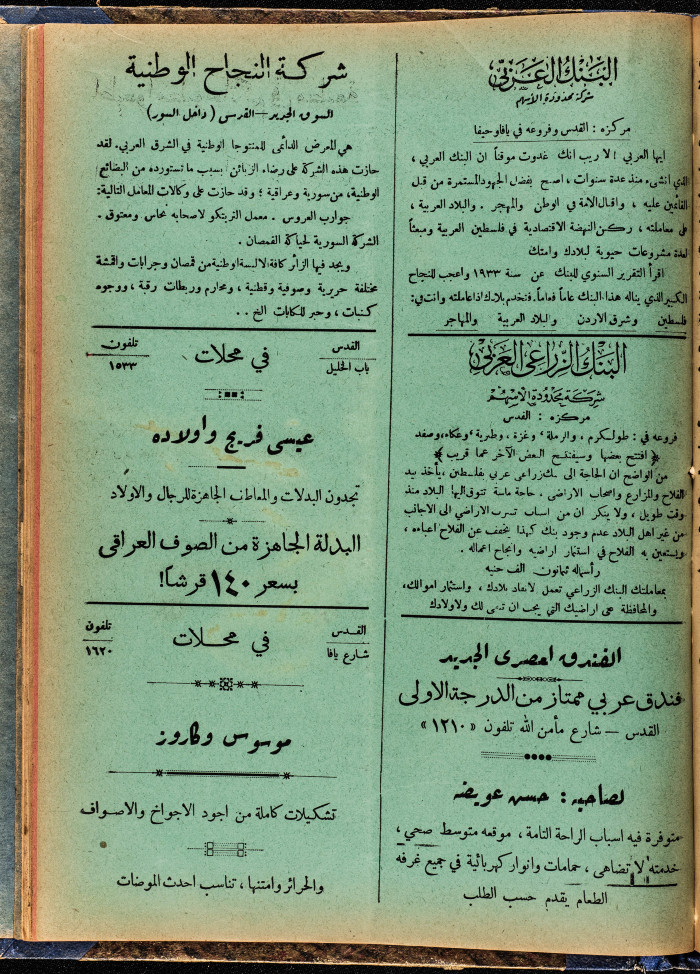 البنك العربي
شركة محدودة الاسهم
مركزه : القدس وفروعه في يافا وحيفا
ايها العربي ! لا ريب انك غدوت موقناً ان البنك العربي ،
الذي انشىء منذ عدة سنوات ، اصبح بفضل الجهود المستمرة من قبل
القائمين عليه ، واقبال الامة في الوطن والمهجر . والبلاد العربية ،
على معاملته ، ركن النهضة الاقتصادية في فلسطين العربية ومبعثاً
لعدة مشروعات حيوية لبلادك وامتك
اقرأ التقرير السنوي للبنك عن سنة ١٩٣٣ واعجب للنجاح
الكبير الذي يناله هذا البنك عاماً فعاماً. فتخدم بلادك اذا عاملته وانت في:
فلسطين وشرق الاردن والبلاد العربية والمهاجر
البنك الزراعي العربي
شركة محدودة الاسهم
مركزه : القدس
فروعه في : طولكرم ، والرملة ، وغزة ، وطبرية ، وعكاء ، وصفد
﴿ افتتح بعضها وسيفتتح البعض الآخر عما قريب ﴾
من الواضح ان الحاجة الى بنك زراعي عربي بفلسطين ، يأخذ بيد
الفلاح والمزارع واصحاب الاراضي . حاجة ماسة تتوق اليها البلاد منذ
وقت طويل ، ولا ينكر ان من اسباب تسرب الاراضي الى الاجانب
من غير اهل البلاد عدم وجود بنك كهذا يخفف عن الفلاح اعباءه ،
ويستعين به الفلاح في استثمار اراضيه وانجاح اعماله .
رأسماله ثمانون الف جنيه
بمعاملتك البنك الزراعي تعمل لانقاذ بلادك ، واستثمار اموالك ،
والمحافظة على اراضيك التي يجب ان تبقى لك ولاولادك
الفندق العصري الجديد
فندق عربي ممتاز من الدرجة الاولى
القدس – شارع مأمن الله تلفون «١٢١٠»
لصاحبه : حسن عويضه
متوفرة فيه اسباب الراحة التامة ، موقعه متوسط صحي ،
خدمته لا تضاهى ، حمامات وانوار كهربائية في جميع غرفه
الطعام يقدم حسب الطلب
شركة النجاح الوطنية
السوق الجديد – القدس ( داخل السور )
هي المعرض الدائمي للمنتوجات الوطنية في الشرق العربي. لقد
حازت هذه الشركة على رضاء الزبائن بسبب ما تستورده من البضائع
الوطنية ، من سورية وعراقية ؛ وقد حازت على وكالات المعامل التالية :
جوارب العروس . معمل التريكو لاصحابه نحاس ومعتوق .
الشركة السورية لحياكة القمصان .
ويجد فيها الزائر كافة الالبسة الوطنية من قمصان وجرابات واقمشة
مختلفة حريرية وصوفية وقطنية ، ومحارم وربطات رقبة ، ووجوه
كنبات ، وحبر للكتابات الخ . .
القدس
باب الخليل
في محلات
تلفون
١٥٣٣
عيسى فريج واولاده
تجدون البدلات والمعاطف الجاهزة للرجال والاولاد
البدلة الجاهزة من الصوف العراقي
بسعر ١٤٠ قرشاً!
القدس
شارع يافا
في محلات
تلفون
١٦٢٠
موسوس وكاروز
تشكيلات كاملة من اجود الاجواخ والاصواف
والحرائر وامتنها ، تناسب احدث الموضات